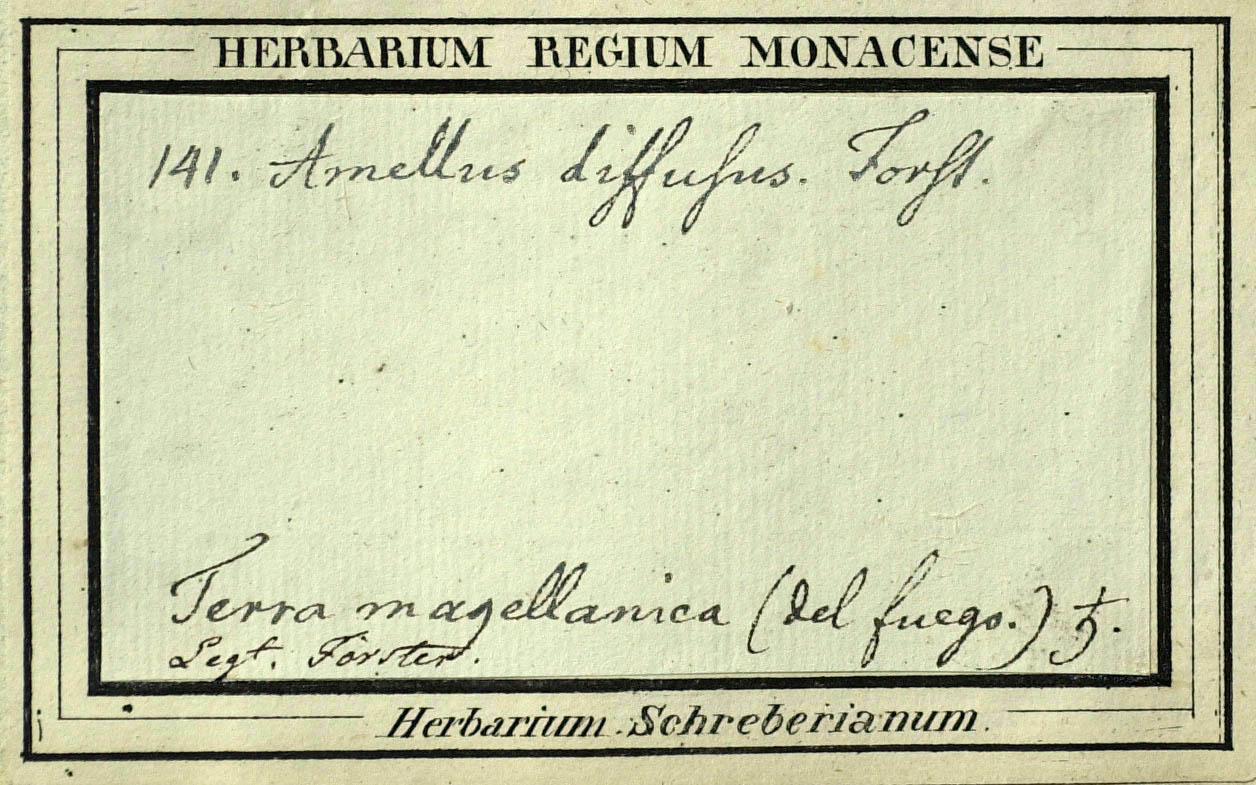 HERBARIUM REGIUM MONACENSE
141. Amellus diffusus. Forst.
Terra magellanica (del fuego.) ♄.
Legt. Förster.
Herbarium Schreberianum.